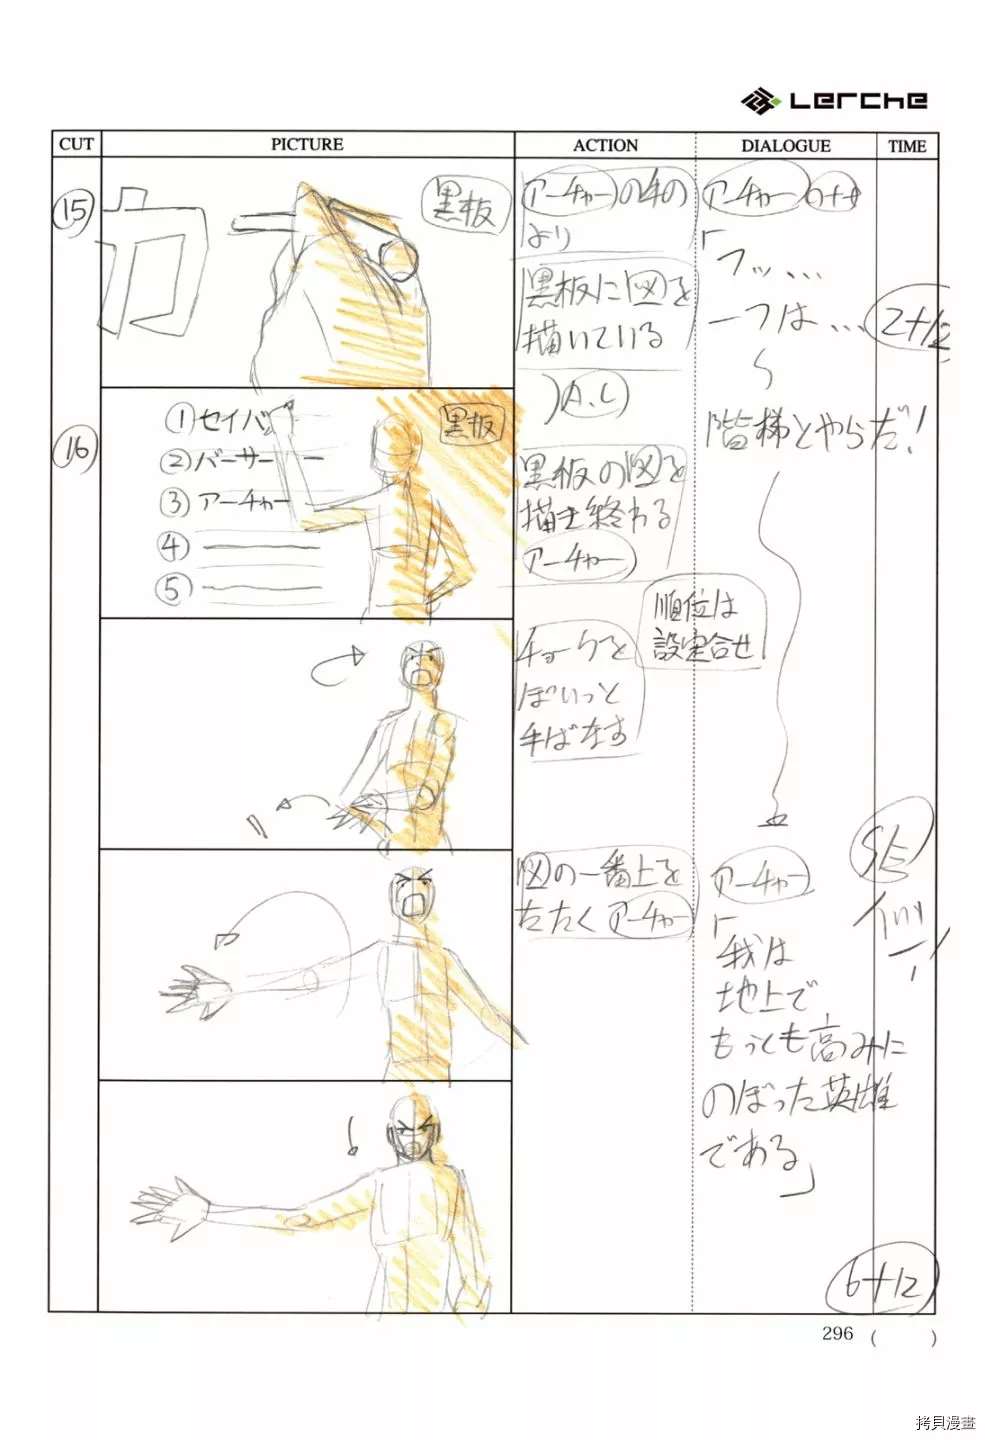 Lerche
CUT PICTURE ACTION DIALOGUE TIME
15
黒板
アーチャーの手の
より
黒板に図を
描いている
A.C
アーチャー
「フッ、、、
一つは...
階梯とやらだ!
2+12
16
黒板
①セイバー
②バーサーー
③アーチャー
④
⑤
黒板の図を
描き終わる
アーチャー
順位は
設定合せ
チョークを
ぽいっと
手ばなす
図の一番上を
たたくアーチャー
SE
アーチャー
「我は
地上で
もっとも高みに
のぼった英雄
である」
6+12
296 ( )
拷貝漫畫